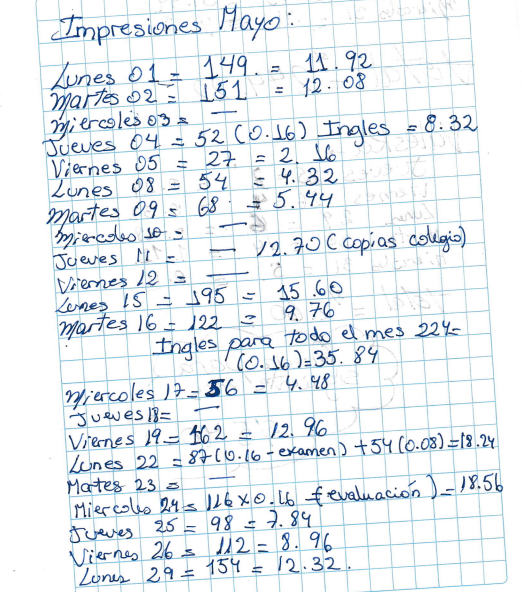 Impresiones Mayo:
Lunes 01 = 149. = 11.92
Martes 02 = 151 = 12.08
Miercoles 03 = —
Jueves 04 = 52 (0.16) Ingles = 8.32
Viernes 05 = 27 = 2.16
Lunes 08 = 54 = 4.32
Martes 09 = 68 = 5.44
Miercoles 10 = —
Jueves 11 = — 12.70 (copias colegio)
Viernes 12 = —
Lunes 15 = 195 = 15.60
Martes 16 = 122 = 9.76
Ingles para todo el mes 224=
(0.16)=35.84
Miercoles 17 = 56 = 4.48
Jueves 18 = —
Viernes 19 = 162 = 12.96
Lunes 22 = 87 (0.16 - examen) + 54 (0.08) = 18.24
Martes 23 = —
Miercoles 24 = 116 x 0.16 = (evaluación) = 18.56
Jueves 25 = 98 = 7.84
Viernes 26 = 112 = 8.96
Lunes 29 = 154 = 12.32.